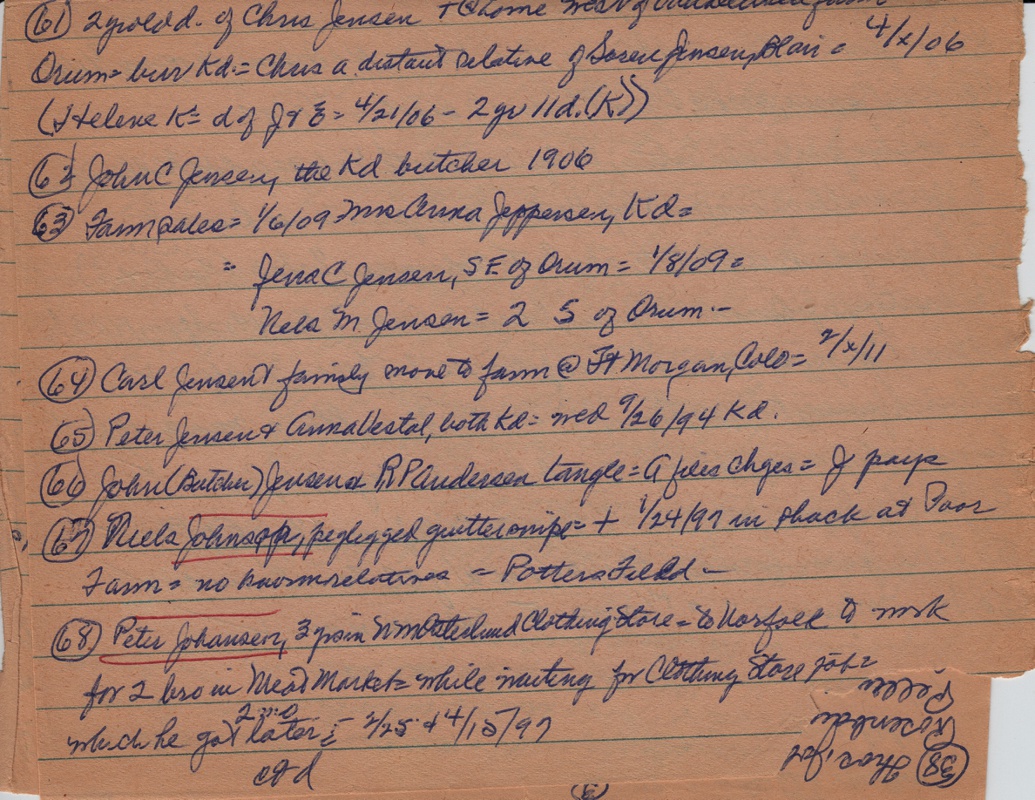 (61) 2 yr old d. of Chris Jensen + @ home west of
Orum = bur Kd. = Chris a distant relative of Soren Jensen, Blair = 4/x/06
(Helene K = d of J & E = 4/21/06 - 2 yr 11d. (K))
(62) John C Jensen, the Kd butcher 1906
(63) Farm sales = 1/6/09 Mrs Anna Jeppersen, Kd =
= Jens C Jensen, SE of Orum = 1/8/09 =
Nels M Jensen = 2 S of Orum.-
(64) Carl Jensen & family move to farm @ Ft Morgan, Colo = 2/x/11
(65) Peter Jensen & Anna Vestal, both Kd = wed 9/26/94 Kd.
(66) John (Butcher) Jensen & R P Andersen tangle = A files chges = J pays
(67) Niels Johnson, peglegged guttersnipe = + 1/24/97 in shack at Poor
Farm = no known relatives = Potters Field -
(68) Peter Johansen, 3 yrs in Clothing Store = to Norfolk to work
for 2 bro in Meat Market = while waiting for Clothing Store job =
which he got 2 mo later = 2/25 & 4/15/97
ctd
(38) Thor,
Rosenbd
(E)